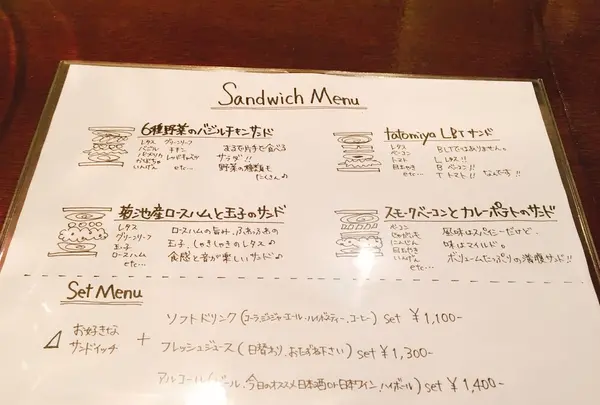 Sandwich Menu
6種野菜のバジルチキンサンド
レタス グリーンリーフ
バジル チキン
パプリカ レッドキャベツ
かぼちゃ
いんげん
etc...
まるで片手で食べる
サラダ!!
野菜の種類も
たくさん♪
tatomiya LBTサンド
レタス
ベーコン
トマト
目玉やき
etc...
BLTではありません。
L レタス!!
B ベーコン!!
T トマト!! なんです!!
菊池産ロースハムと玉子のサンド
レタス
グリーンリーフ
玉子
ロースハム
etc...
ロースハムの旨み、ふわふわの
玉子、しゃきしゃきのレタス♪
食感と音が楽しいサンド♪
スモークベーコンとカレーポテトのサンド
ベーコン
じゃがいも
にんじん
目玉やき
いんげん
etc...
風味はスパイシーだけど、
味はマイルド。
ボリュームたっぷりの満腹サンド!!
Set Menu
お好きな
サンドイッチ
+
ソフトドリンク(コーラ・ジンジャーエール・ハイボティー・コーヒー) set ¥1,100-
フレッシュジュース(日替わり、おたずね下さい) set ¥1,300-
アルコール(ビール、今日のオススメ日本酒or日本ワイン、ハイボール) set ¥1,400-